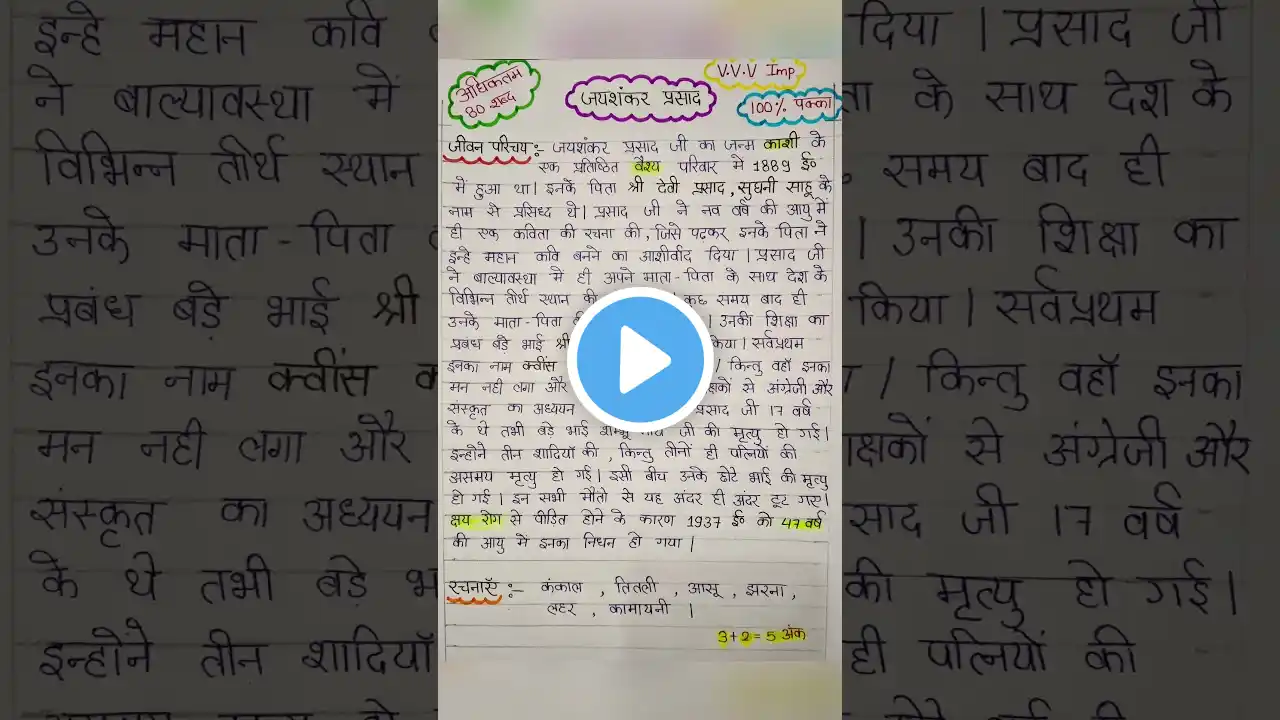 अधिकतम
80 शब्द
जयशंकर प्रसाद
V.V.V Imp.
100% पक्का
जीवन परिचय :- जयशंकर प्रसाद जी का जन्म काशी के
एक प्रतिष्ठित वैश्य परिवार मे 1889 ई०
में हुआ था। इनके पिता श्री देवी प्रसाद, सुघनी साहू के
नाम से प्रसिध्द थे। प्रसाद जी ने नव वर्ष की आयु में
ही एक कविता की रचना की, जिसे पढ़कर इनके पिता ने
इन्हे महान कवि बनने का आशीर्वाद दिया। प्रसाद जी
ने बाल्यावस्था में ही अपने माता-पिता के साथ देश के
विभिन्न तीर्थ स्थान की कुछ समय बाद ही
उनके माता-पिता । उनकी शिक्षा का
प्रबंध बड़े भाई श्री किया। सर्वप्रथम
इनका नाम क्वींस । किन्तु वहाँ इनका
मन नही लगा और शिक्षकों से अंग्रेजी और
संस्कृत का अध्ययन प्रसाद जी 17 वर्ष
के थे तभी बड़े भाई जी की मृत्यु हो गई।
इन्होंने तीन शादियाॅ की, किन्तु तीनों ही पत्नियों की
असमय मृत्यु हो गई। इसी बीच उनके छोटे भाई की मृत्यु
हो गई। इन सभी मौतो से यह अंदर ही अंदर टूट गए।
क्षय रोग से पीडित होने के कारण 1937 ई० को 47 वर्ष
की आयु मे इनका निधन हो गया।
रचनाएँ :- कंकाल , तितली , आसू , झरना,
लहर , कामायनी ।
3+2=5 अंक